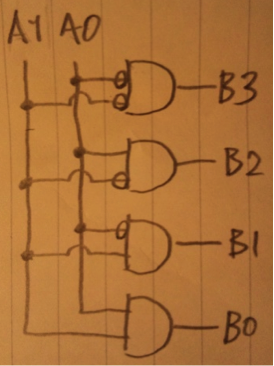 A1 A0
B3
B2
B1
B0